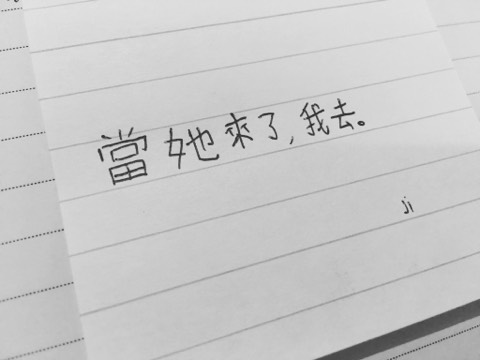 當她來了,我去。
ji